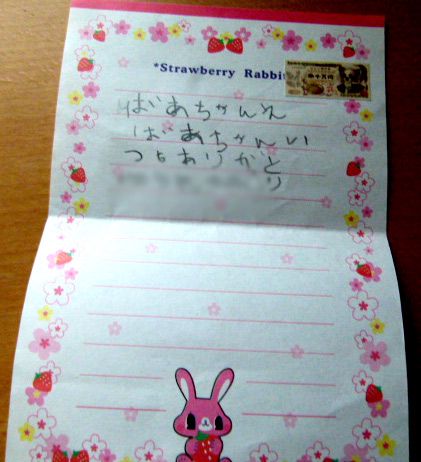 *Strawberry Rabbi
ばあちゃんえ
ばあちゃんい
つもありがと
う